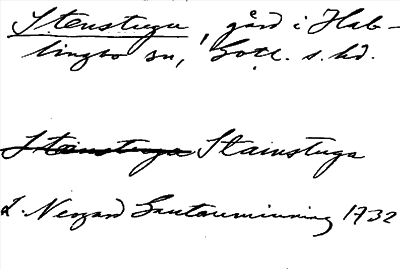 Stenstugu, gård i Hab-
lingbo sn, Gotl. s. hd.
Stenstuga Stainstuga
L. Neogard Gautauminning 1732